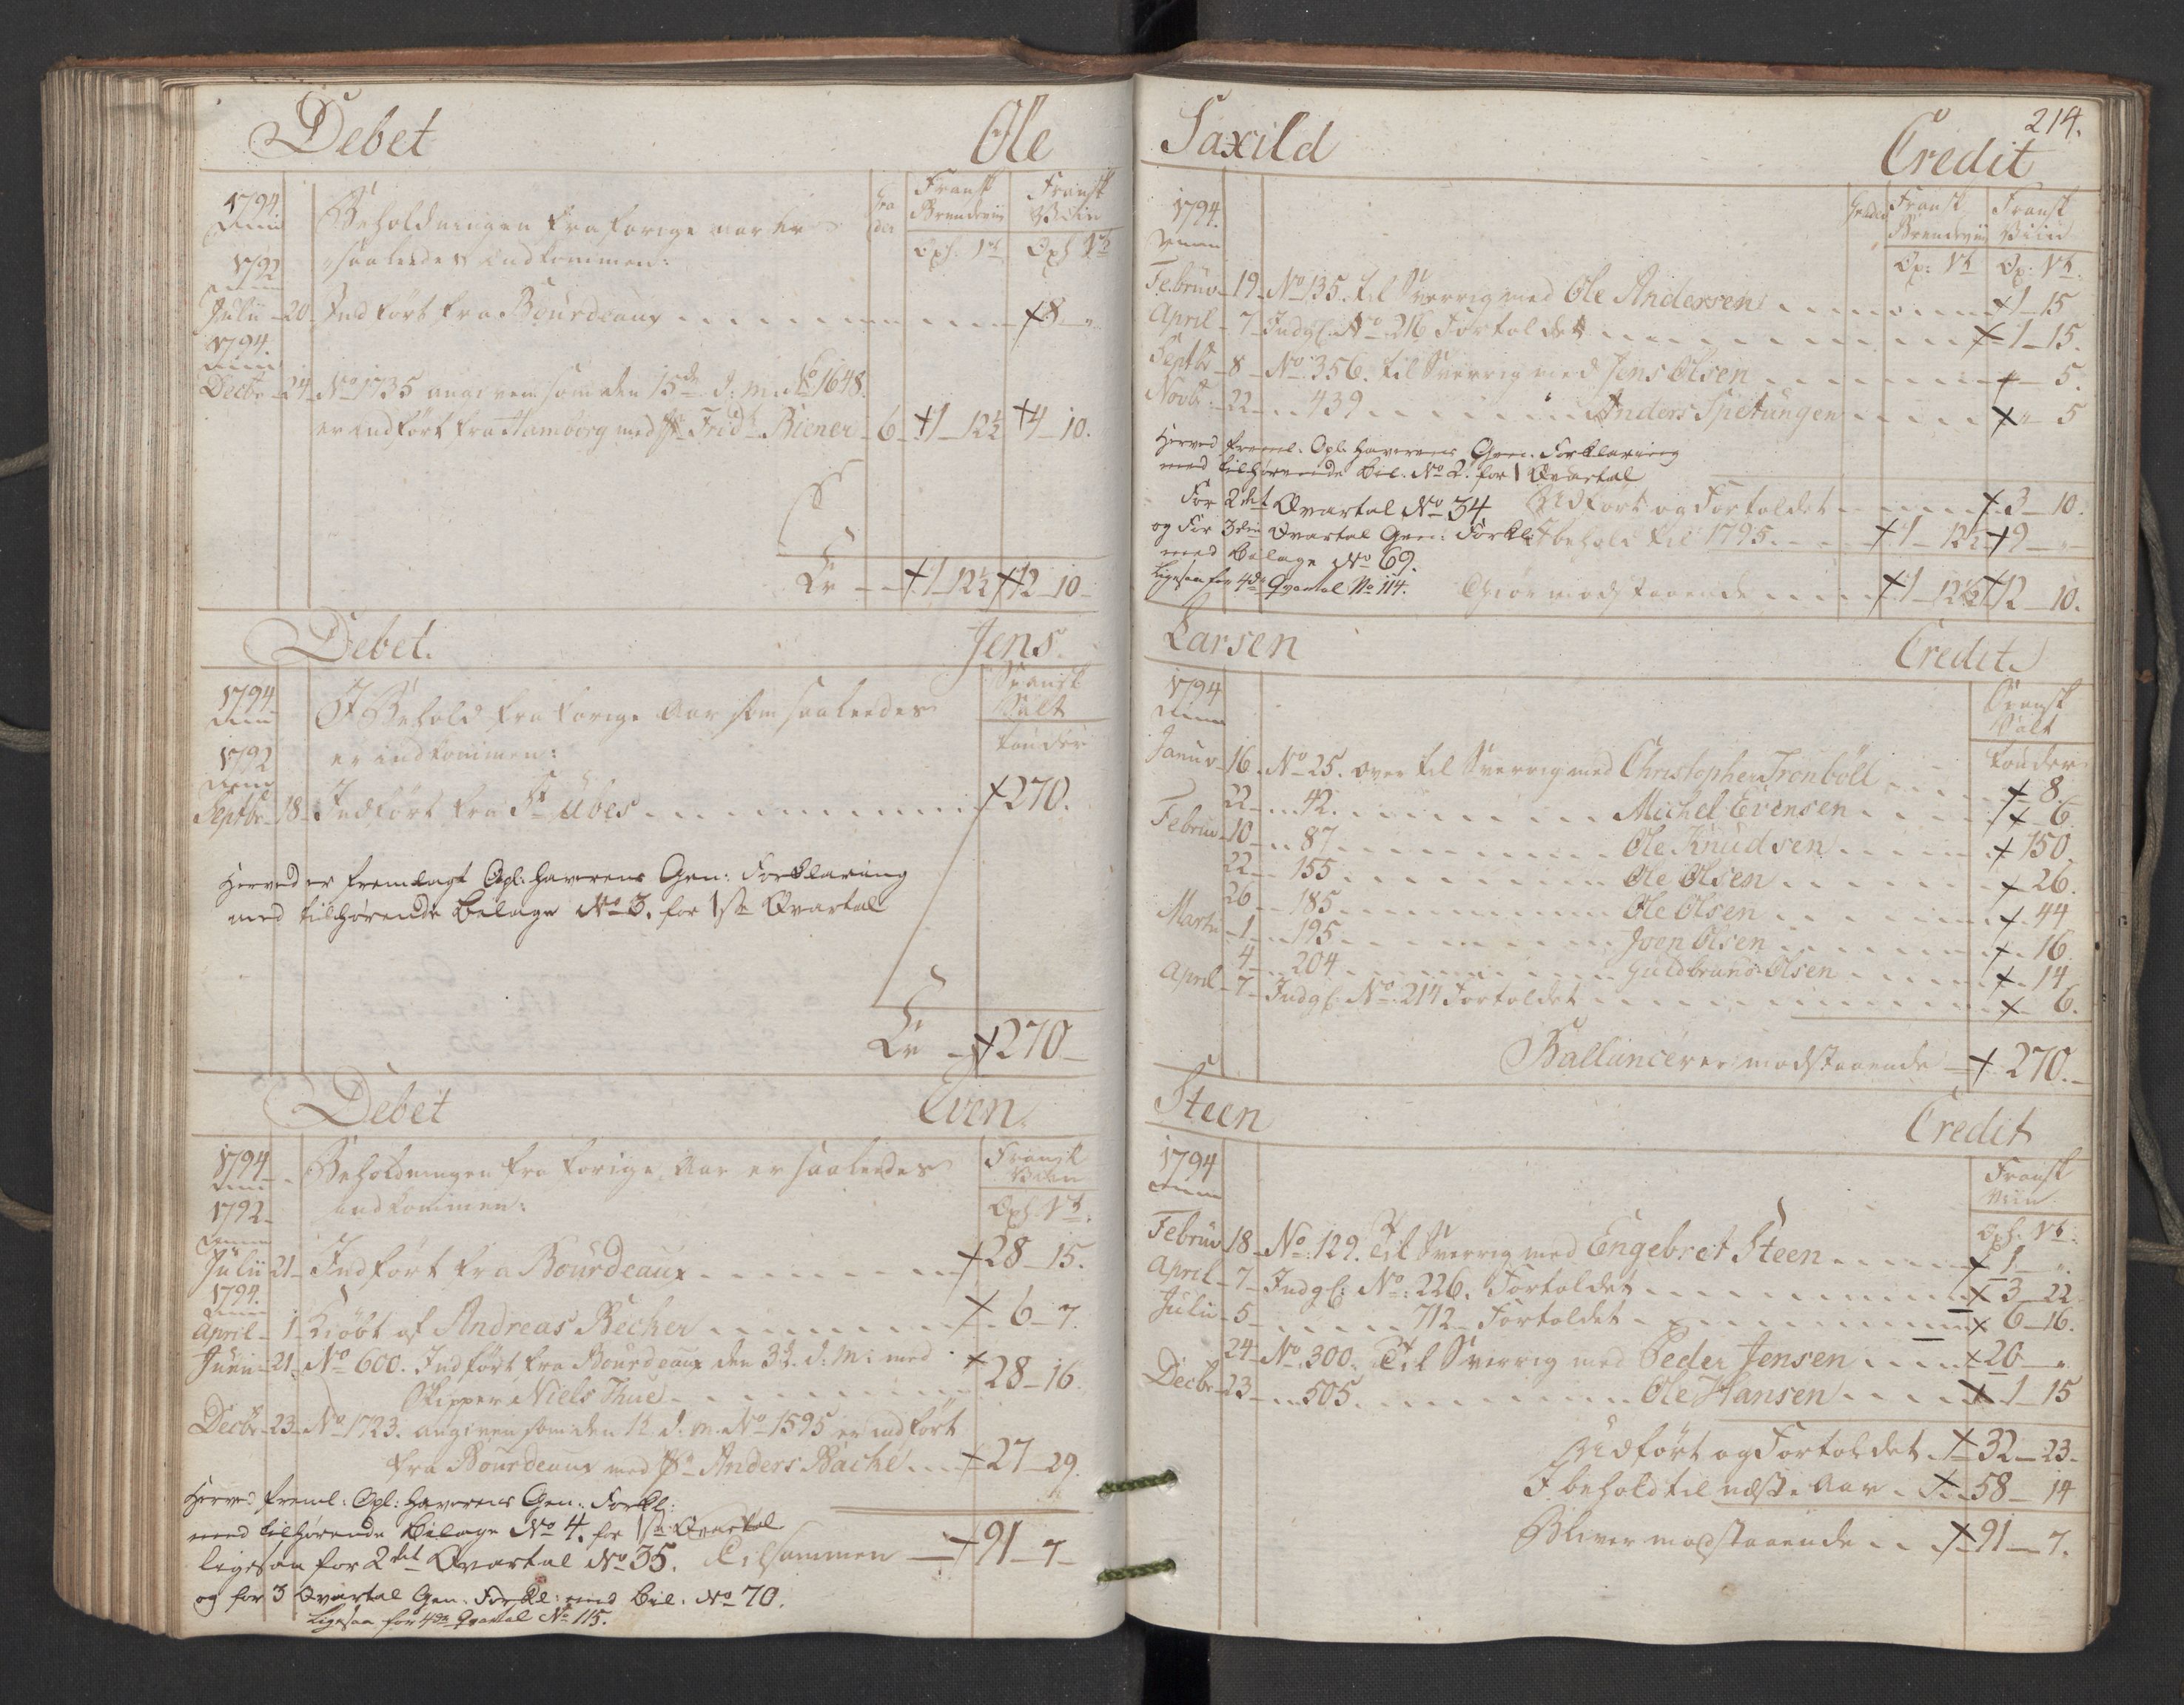 Debet Ole
1794
Beholdningen fra forige aar er
Gra
der
Fransk
Brændeviin
Fransk
Viin
saaledes indkommen:
Oxh. Vt Oxh Vt
1792
Julii 20 Indført fra Bourdeaux 8 "
1794.
Decbr 24 No 1735 angiven som den 15de d: m: No 1648.
er indført fra Hamborg med Sr Frid Biener 6 1 12½ 4 10.
Er 1 12½ 12 10
Debet. Jens
1794
I Behold fra forige Aar som saaledes
Spansk
Salt
er indkommen:
tønder
1792
Septbr 18 Indført fra St Übes 270.
Herved er fremlagt Opl: haverens Gen: Forklaring
med tilhørende Bilage No 3. for 1ste Qvartal
Er 270
Debet Even
1794
Beholdningen fra forige Aar er saaledes
Fransk
Viin
indkommen:
Oxh. Vt.
1792
Julii 21 Indført fra Bourdeaux 28 15.
1794.
April 1 Kiöbt af Andreas Becker 6 7.
Junii 21 No 600. Indført fra Bourdeaux den 3de d: M: med
Skipper Niels Thue 28 16.
Decbr 23 No 1723. angiven som den 12 d. m. No 1595 er indført
fra Bourdeaux med Sr Anders Bache 27 29.
Herved freml: Opl: haverens Gen: Forkl:
med tilhørende Bilage No 4. for 1ste Qvartal
ligesaa for 2det Qvartal No 35. Tilsammen 91 7
og for 3 Qvartal Gen: Forkl: med Bil. No 70.
Ligesaa for 4de Qvartal No 115.
214.
Saxild Credit
1794.
Grader
Fransk
Brændeviin
Fransk
Viin
Ox: Vt Ox: Vt.
Februar 19 No 135. til Sverrig med Ole Andersen 1 15
April 7 Indgl: No 216 Fortoldet 1 15.
Septbr 8 No 356. til Sverrig med Jens Olsen " 5.
Novbr 22 " 439 Anders Spetungen " 5
Herved freml: Opl: haverens Gen: Forklaring
med tilhørende Bil. No 2. for 1 Qvartal
For 2det Qvartal No 34 Udført og Fortoldet 3 10.
og for 3die Qvartal Gen: Forkl: I behold til 1795. 1 12½ 9 "
med Bilage No 69.
Ligesaa for 4de Qvartal No 114. Giør modstaaende 1 12½ 12 10.
Larsen Credit
1794
Spansk
Salt
tønder
Januar 16 No 25. over til Sverrig med Christopher Tronböll 8.
22 " 42. Michel Evensen 6
Februar 10 " 87 Ole Knudsen 150
22 155 Ole Olsen 26.
26 185 Ole Olsen 44
Martii 1 195 Joen Olsen 16
4 204 Guldbrand Olsen 14
April 7 Indgl: No 214 Fortoldet 6.
Ballancerer modstaaende 270.
Steen Credit
1794
Fransk
Viin
Oxh. Vt.
Februar 18 No 129. Til Sverrig med Engebret Steen 1 "
April 7 Indgl: No: 226. Fortoldet 3 22
Julii 5 712 Fortoldet 6 16.
24 No 300. Til Sverrig med Peder Jensen 20 "
Decbr 23 505 Ole Hansen 1 15
Udført og Fortoldet 32 23.
I behold til næste Aar 58 14
Bliver modstaaende 91 7.